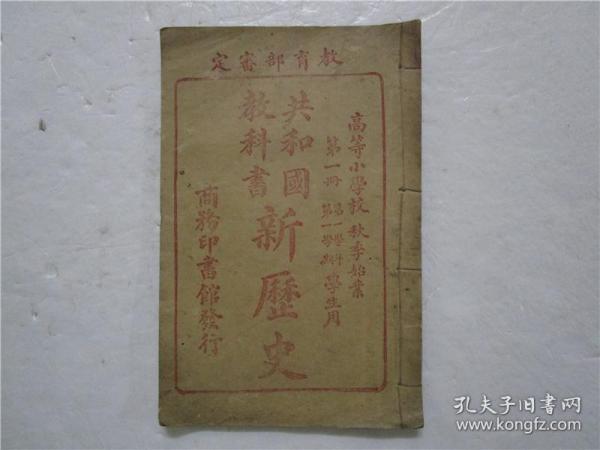 教育部審定
高等小學校秋季始業
第一冊
第一學年
第一學期
學生用
共和國
教科書
新歷史
商務印書館發行
孔夫子旧书网
www.kongfz.com